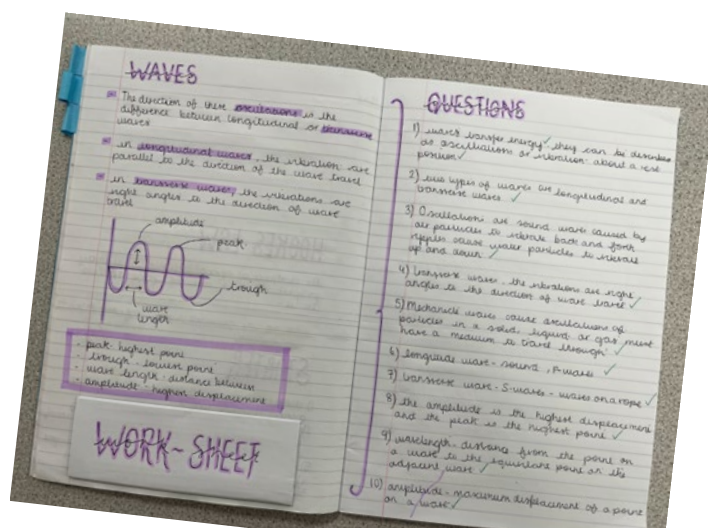 WAVES
The direction of these oscillations is the
difference between longitudinal or transverse
waves
in longitudinal waves, the vibration are
parallel to the direction of the wave travel
in transverse waves, the vibrations are
right angles to the direction of wave
travel
amplitude
peak
trough
wave
length
- peak - highest point
- trough - lowest point
- wave length - distance between
- amplitude - highest displacement
WORK-SHEET
QUESTIONS
1) waves transfer energy, they can be described
as oscillations or vibration about a rest
position
2) two types of waves are longitudinal and
transverse waves
3) Oscillations are sound waves caused by
air particles to vibrate back and forth
ripples cause water particles to vibrate
up and down
4) transverse waves - the vibrations are right
angles to the direction of wave travel
5) Mechanical waves cause oscillations of
particles in a solid liquid or gas must
have a medium to travel through
6) longitude wave - sound, P-waves
7) transverse wave - S-waves - waves on a rope
8) the amplitude is the highest displacement
and the peak is the highest point
9) wavelength - distance from the point on
a wave to the equivalent point on the
adjacent wave
10) amplitude - maximum displacement of a point
on a wave